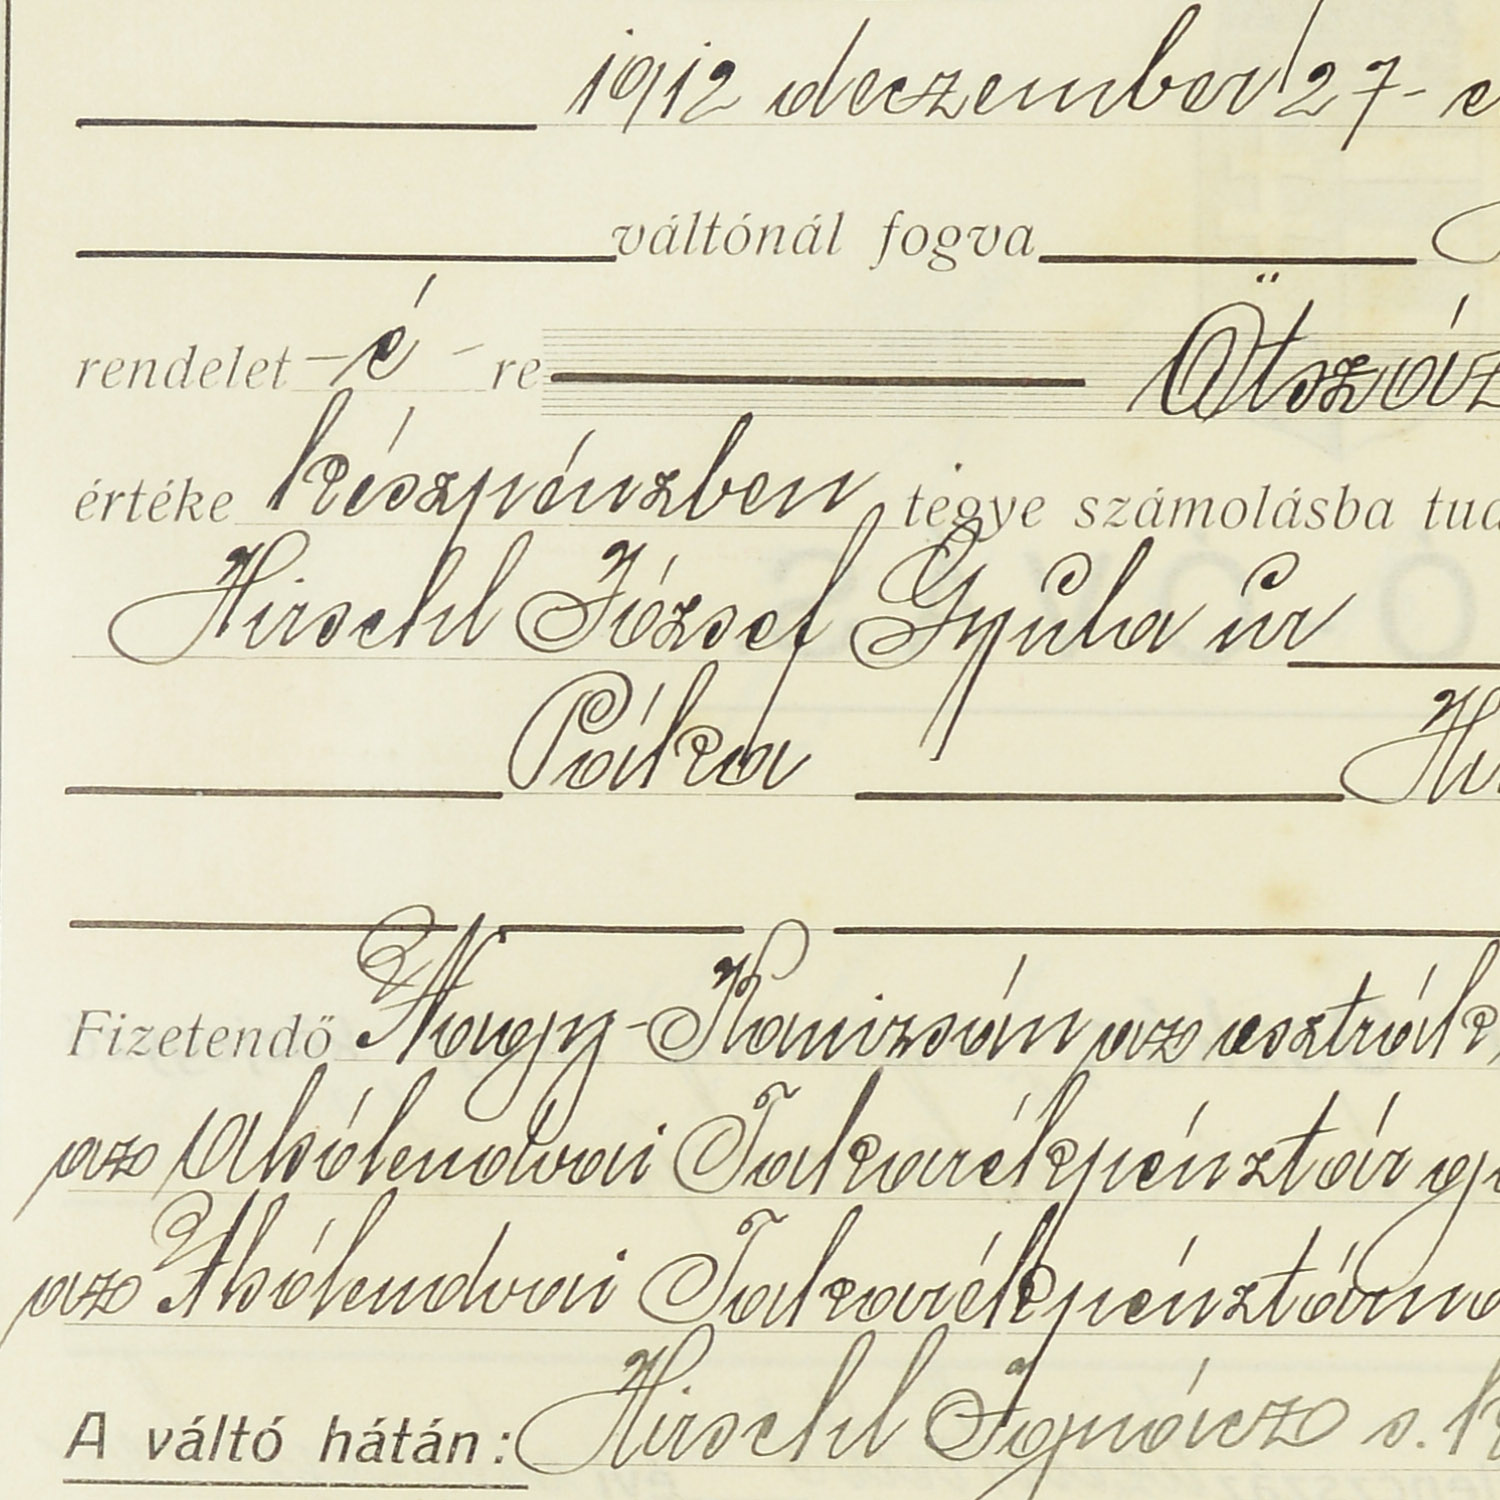 1912 deczember 27-
váltónál fogva
rendelet - é - re Ötszáz
értéke készpénzben tegye számolásba
Hirschl József Gyula úr
Páka
Fizetendő Nagy-Kanizsán az osztrák
az Alsólendvai Takarékpénztár
az Alsólendvai Takarékpénztárna
A váltó hátán: Hirschl Ignácz s. k